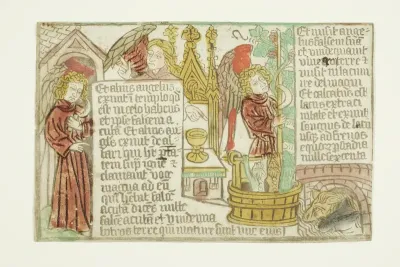 Et alius angelus
exivit d templo qd
est in celo habens
et ipse falcem a
cuta Et alius an
gelus exivit de al
tari qui h
tem supra igne et
clamavit voce
magna ad eu
qui habet falce
acuta dices mitte
falce acuta et vindemia
botros terre quia mature sunt uve eius
Et misit ange
lus falcem sua
et vindemiavit
vinea terre et
misit in lacum
irae dei magnu
Et calcatus est
lacus extra ci
vitate et exivit
sanguis de lacu
usq ad frenos
equoru p stadia
mille sexcenta